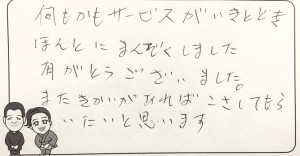 何もかもサービスがいきとどき
ほんとにまんぞくしました
有がとうございました。
またきかいがあればこさしてもら
いたいと思います